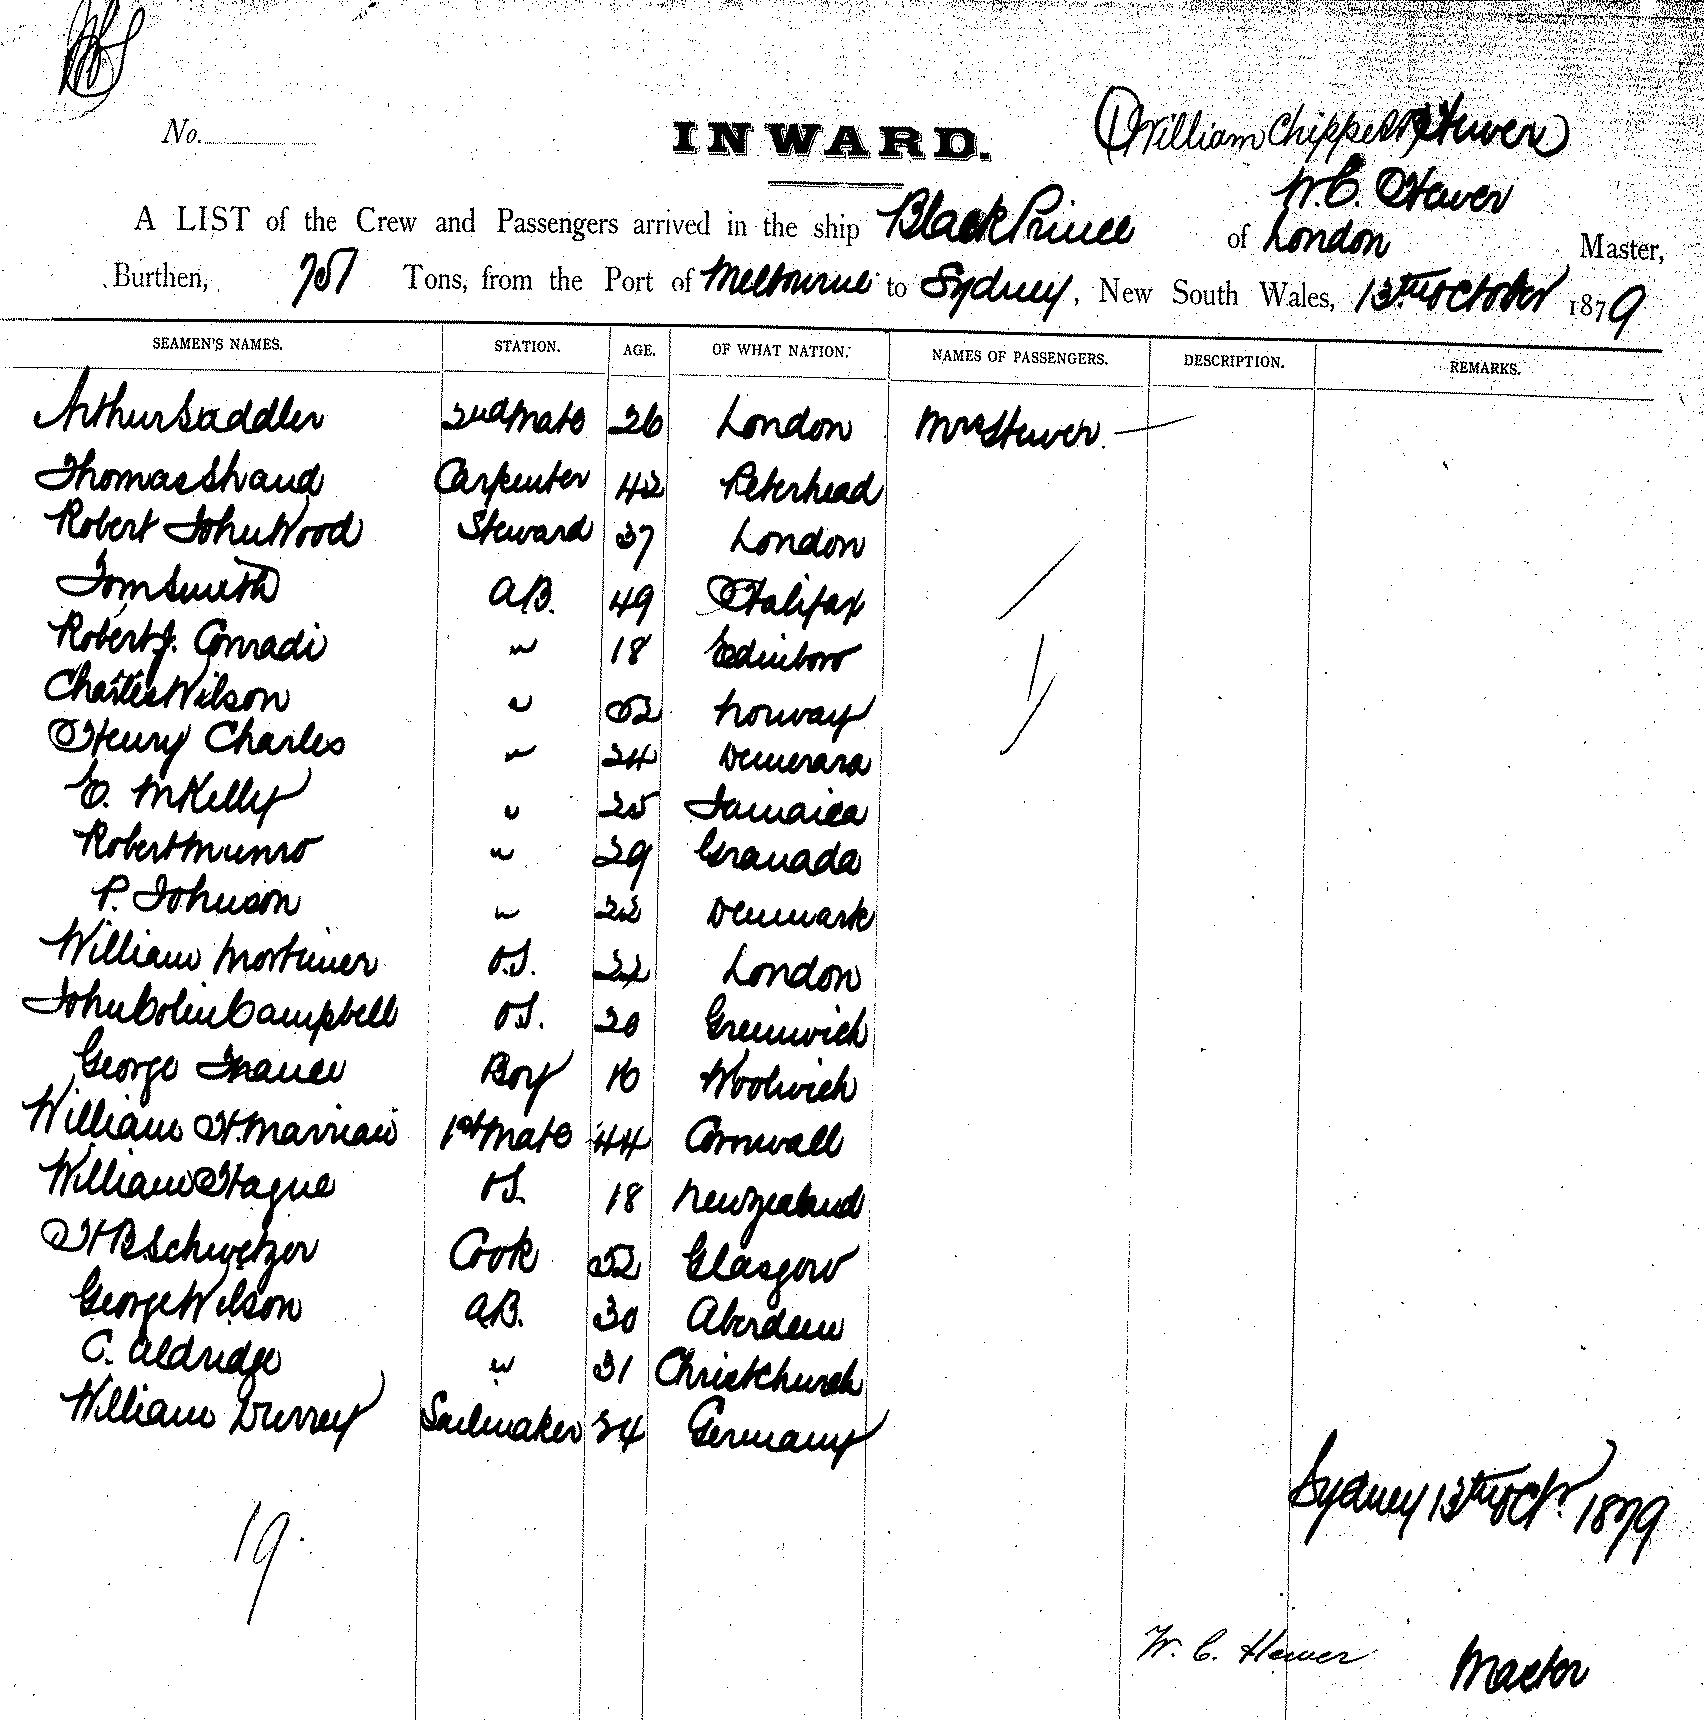 No.
INWARD.
(William Chippen Hewer)
W. C. Hewer
A LIST of the Crew and Passengers arrived in the ship Black Prince of London Master,
Burthen, 751 Tons, from the Port of Melbourne to Sydney, New South Wales, 13th October 1879
SEAMEN'S NAMES. STATION. AGE. OF WHAT NATION. NAMES OF PASSENGERS. DESCRIPTION. REMARKS.
Arthur Saddler 2nd Mate 26 London Mrs Hewer
Thomas Shand Carpenter 42 Peterhead
Robert John Wood Steward 37 London
Tom Smith A.B. 49 Halifax
Robert J. Conradi " 18 Edinboro
Charles Wilson " 52 Norway
Henry Charles " 24 Demerara
E. McKelly " 25 Jamaica
Robert Munro " 29 Granada
P. Johnson " 22 Denmark
William Mortimer O.S. 22 London
John Colin Campbell O.S. 20 Greenwich
George France Boy 16 Woolwich
William H. 1st Mate 44 Cornwall
William Hague O.S. 18 New Zealand
H B Schwetzer Cook 52 Glasgow
George Wilson A.B. 30 Aberdeen
C. Aldridge " 31 Christchurch
William Durrey Sailmaker 34 Germany
Sydney 13th Octr 1879
19.
W. C. Hewer Master